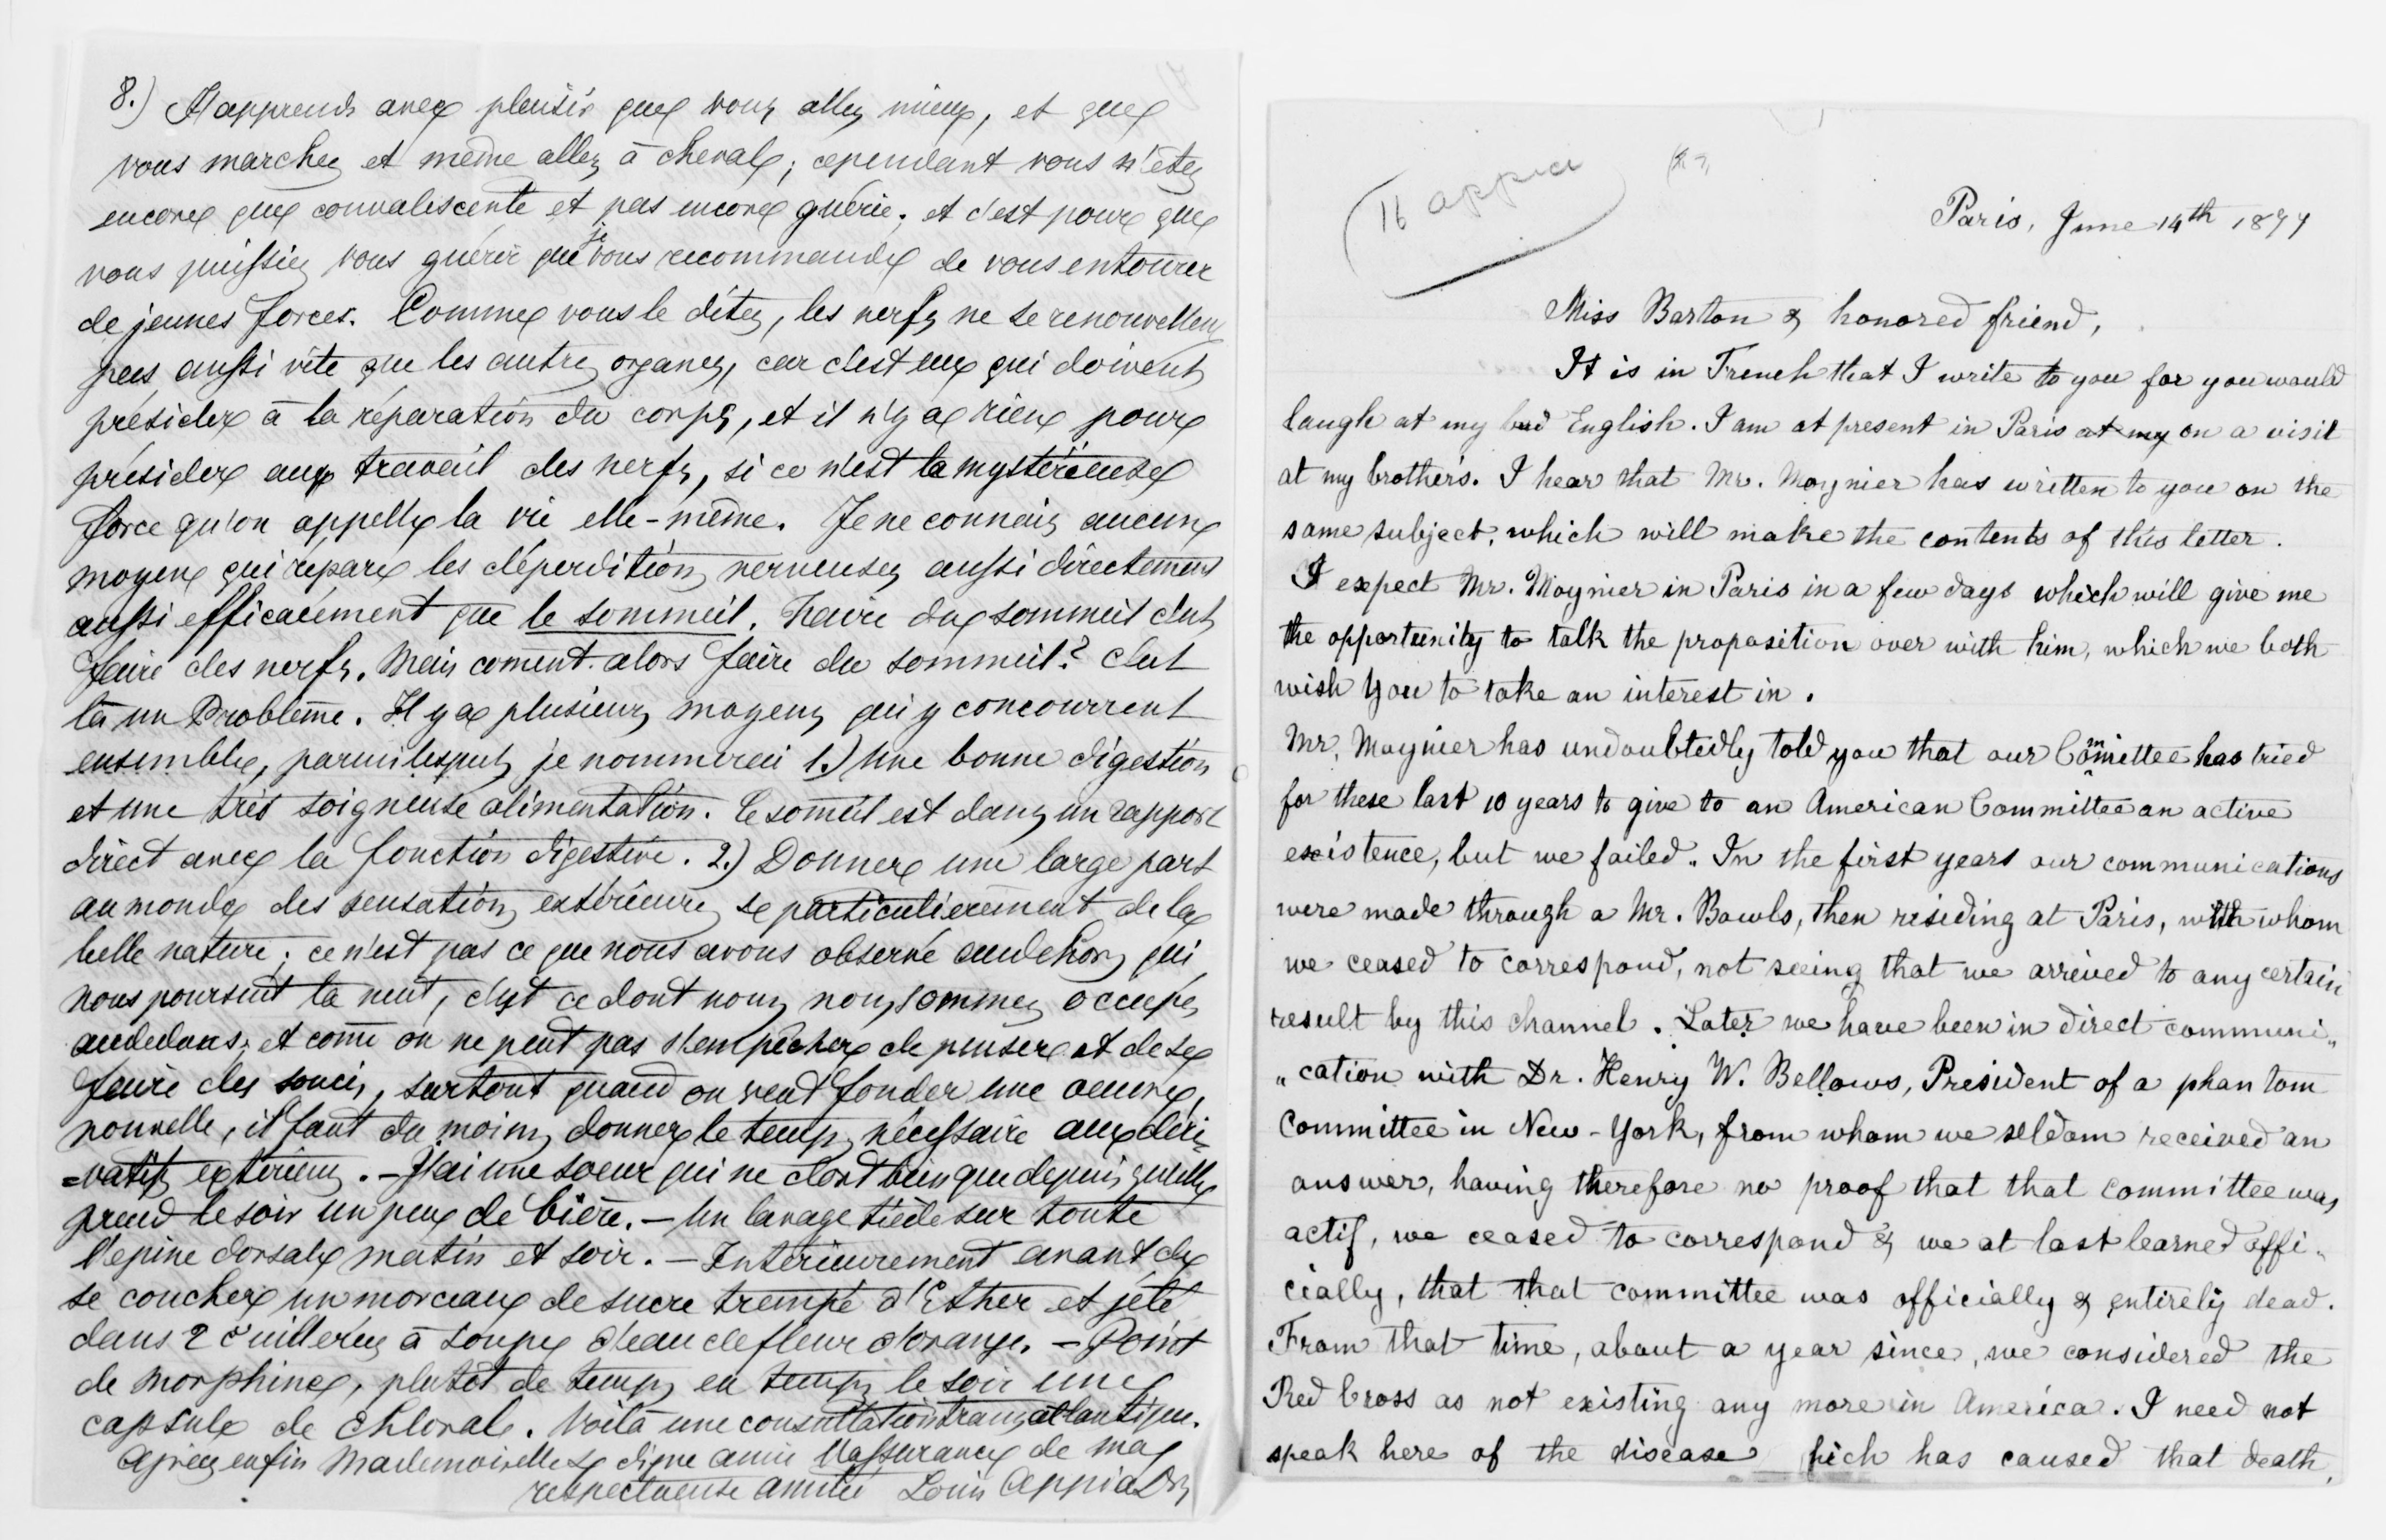 8.) J'apprends avec plaisir que vous allez mieux, et que
vous marchez et même allez à cheval; cependant vous n'êtes
encore que convalescente et pas encore guérie; et c'est pour que
vous puissiez vous guérir que je vous recommande de vous entourer
de jeunes forces. Comme vous le dites, les nerfs ne se renouvellent
pas aussi vite que les autres organes, car c'est eux qui doivent
présider à la réparation du corps, et il n'y a rien pour
présider au travail des nerfs, si ce n'est la mystérieuse
force qu'on appelle la vie elle-même. Je ne connais aucun
moyen qui répare les déperditions nerveuses aussi directement
aussi efficacement que le sommeil. Faire du sommeil c'est
faire des nerfs. Mais coment alors faire du sommeil? c'est
là un Problème. Il y a plusieurs moyens qui y concourrent
ensemble, parmi lesquels je nommerai 1.) Une bonne digestion
et une très soigneuse alimentation. Le someil est dans un rapport
direct avec la fonction digestive. 2.) Donner une large part
au monde des sensations extérieures & particulièrement de la
belle nature; ce n'est pas ce que nous avons observé audehors qui
nous poursuit la nuit, c'est ce dont nous nous sommes occupés
audedans; et come on ne peut pas s'empêcher de penser et de se
faire des soucis, surtout quand on veut fonder une oeuvre
nouvelle, il faut du moins donner le temps nécessaire aux déri-
=vatifs extérieurs. - J'ai une soeur qui ne dort bien que depuis qu'elle
prend le soir un peu de bière. - Un lavage tiède sur toute
l'epine dorsale matin et soir. - Intérieurement avant de
se coucher un morceau de sucre trempé d'Ether et jeté
dans 2 cuillerées à soupe d'eau de fleur d'orange. - Point
de morphine, plutôt de temps en temps le soir une
capsule de Chloral. Voilà une consultation transatlantique.
Agréez enfin Mademoiselle & digne amie l'assurance de ma
respectueuse amitié Louis Appia Dr
(11 appia
Paris, June 14th 1877
Miss Barton & honored friend,
It is in French that I write to you for you would
laugh at my bad English. I am at present in Paris at my on a visit
at my brother's. I hear that Mr. Moynier has written to you on the
same subject, which will make the contents of this letter.
I expect Mr. Moynier in Paris in a few days which will give me
the opportunity to talk the proposition over with him, which we both
wish you to take an interest in.
Mr. Moynier has undoubtedly told you that our Committee has tried
for these last 10 years to give to an American Committee an active
existence, but we failed. In the first years our communications
were made through a Mr. Bowls, then residing at Paris, with whom
we ceased to correspond, not seeing that we arrived to any certain
result by this channel. Later we have been in direct communi„
„cation with Dr. Henry W. Bellows, President of a phantom
Committee in New-York, from whom we seldom received an
answer, having therefore no proof that that committee was
actif, we ceased to correspond & we at last learned offi„
cially, that that committee was officially & entirely dead.
From that time, about a year since, we considered the
Red Cross as not existing any more in America. I need not
speak here of the disease hich has caused that death,